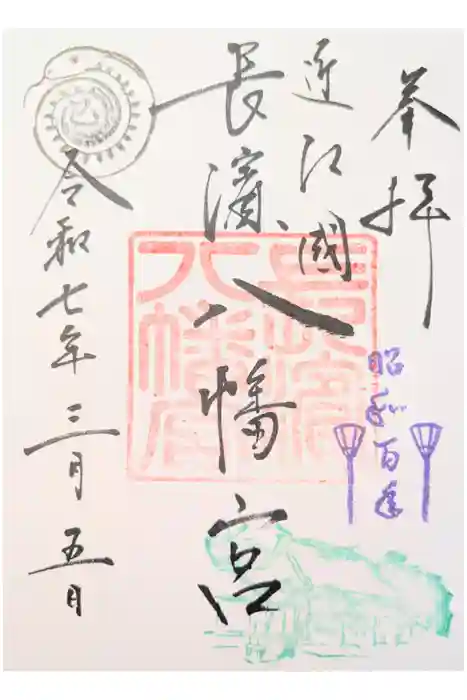 奉拝
昭和百年
近江國
長濱八幡宮
長濱八幡宮
巳
令和七年三月五日